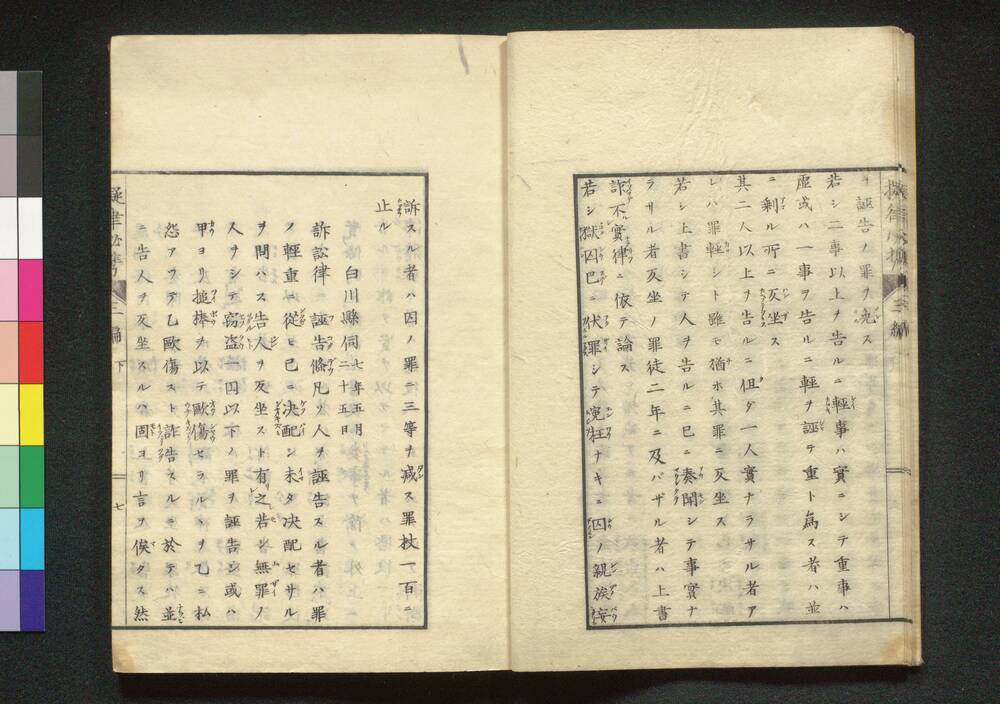 ヰ誣告ノ罪ヲ免ス
若シ二事以上ヲ告ルニ輕事ハ實ニシテ重事ハ
虚或ハ一事ヲ告ルニ輕ヲ誣テ重ト爲ス者ハ並
ニ剰ル所ニ反坐ス
其二人以上ヲ告ルニ但ダ一人實ナラサル者ア
レハ罪輕シト雖モ猶ホ其罪ニ反坐ス
若シ上書シテ人ヲ告ルニ已ニ奏聞シテ事實ナ
ラサル者反坐ノ罪徒二年ニ及バザル者ハ上書
詐不實律ニ依テ論ス
若シ獄囚已ニ伏罪シテ寃枉ナキニ囚ノ親族妄
訴スル者ハ囚ノ罪ニ三等ヲ减ス罪杖一百ニ
止ル
白川縣伺七年五月二十五日
訴訟律 誣告條凡ソ人ヲ誣告スル者ハ罪
ノ輕重ニ從ヒ已ニ決配シ未タ決配セサル
ヲ問ハス告人ヲ反坐スト有之若シ無罪ノ
人ヲシテ竊盗一囚以下ノ罪ヲ誣告シ或ハ
甲ヨリ搥棒ヲ以テ歐傷セラルヽヲ乙ニ私
怨アツテ乙歐傷スト詐告スルニ於テハ並
ニ告人ヲ反坐スルハ固ヨリ言ヲ俟タス然
三編 下
七